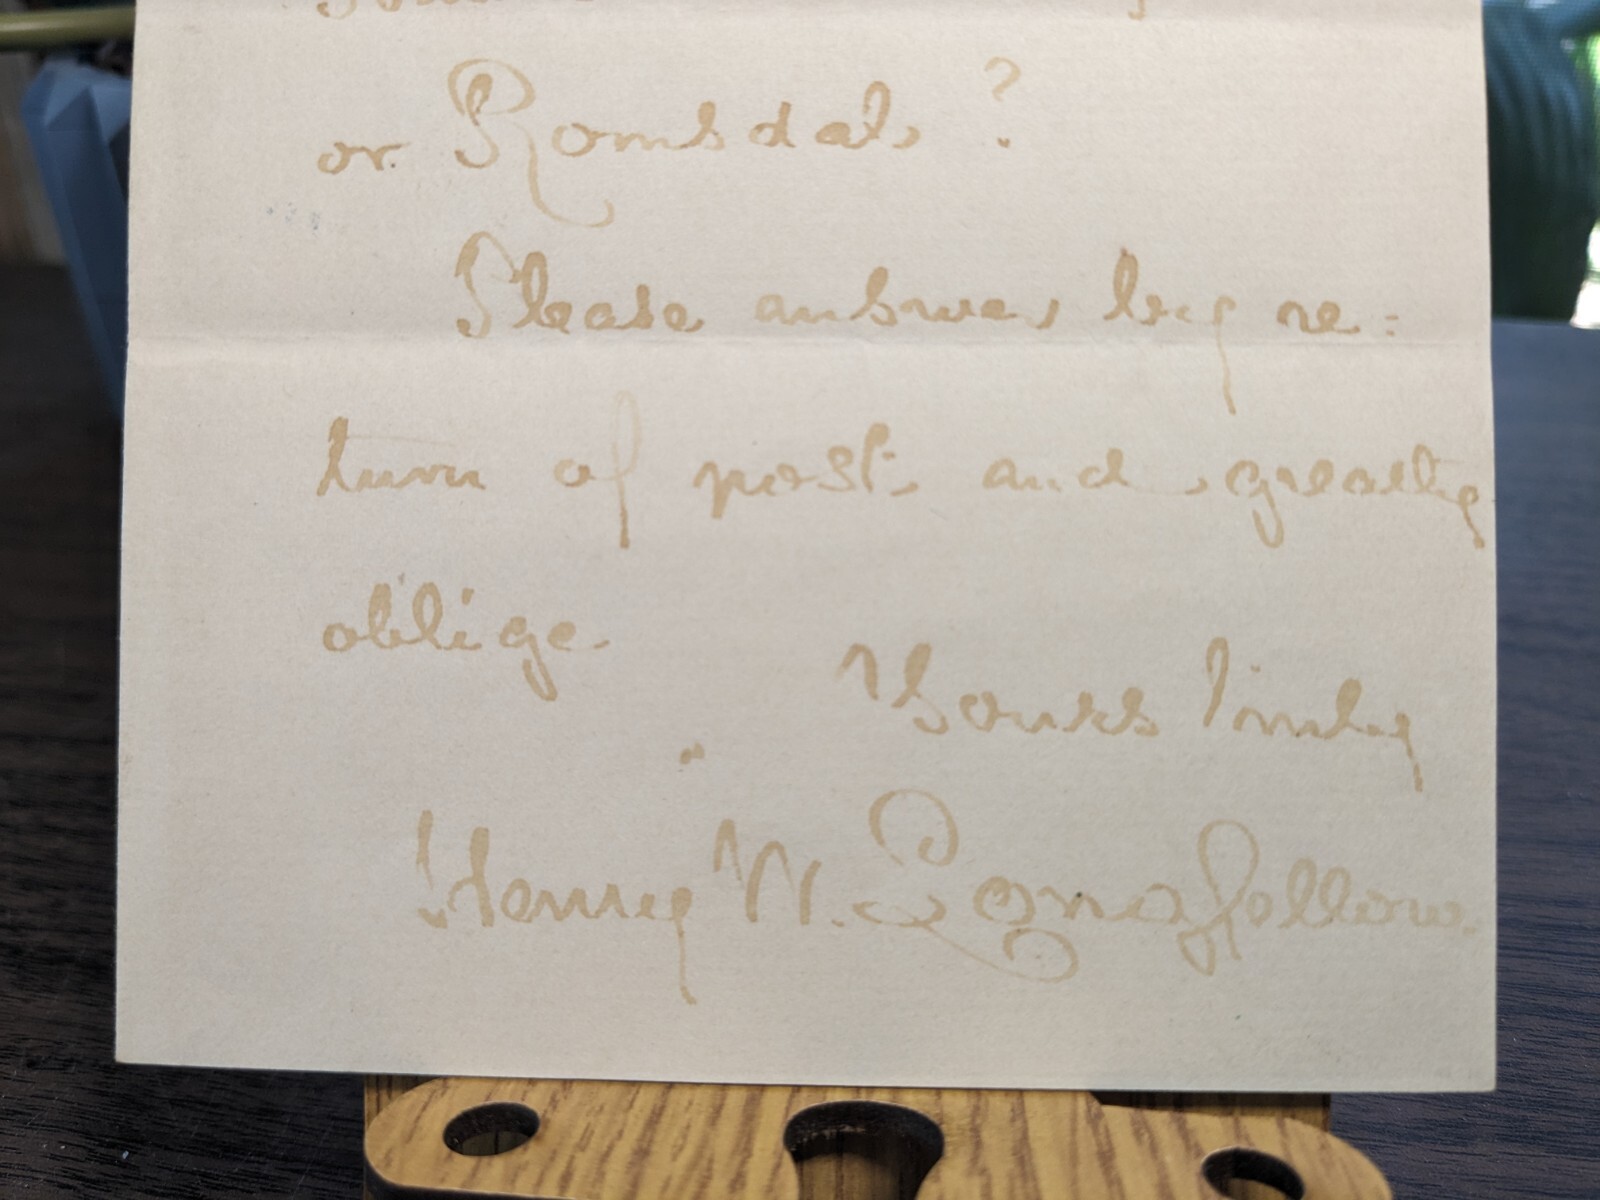 or Romsdal?
Please answer by re:
turn of post and greatly
oblige
Yours truly
Henry W. Longfellow.